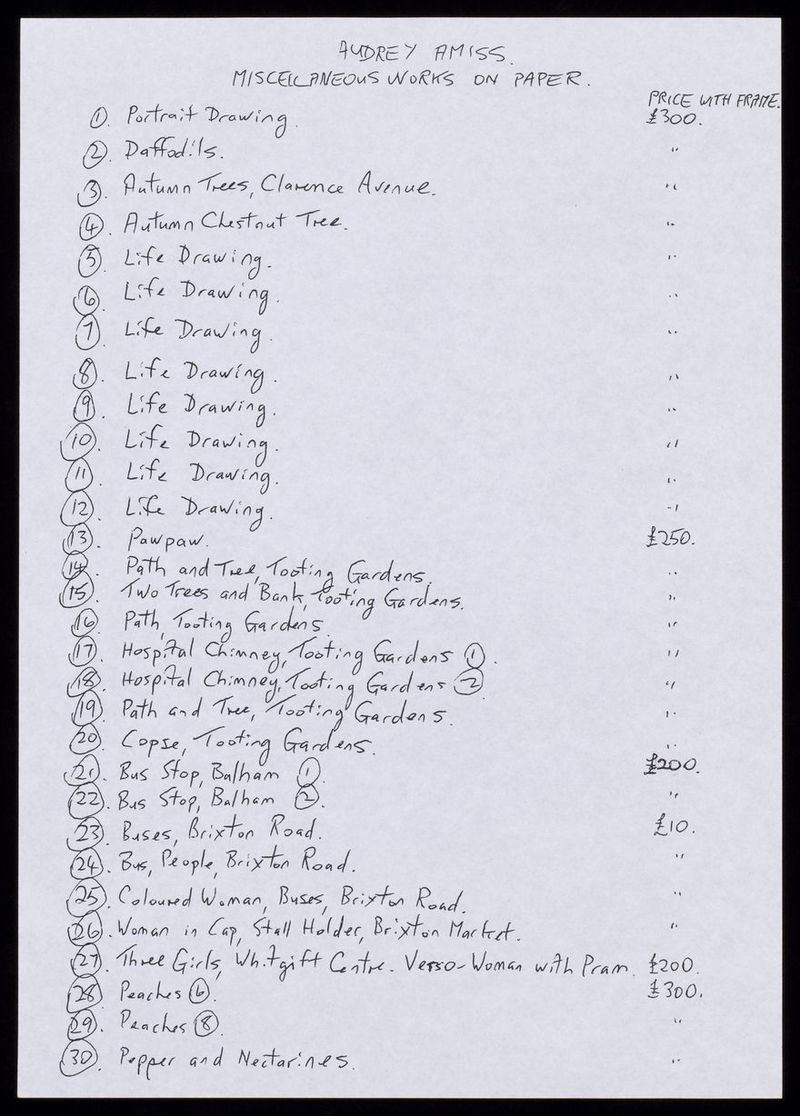 AUDREY AMISS.
MISCELLANEOUS WORKS ON PAPER.
PRICE WITH FRAME.
① Portrait Drawing. £300.
②. Daffodils. "
③. Autumn Trees, Clarence Avenue. "
④. Autumn Chestnut Tree. "
⑤. Life Drawing. "
⑥. Life Drawing. "
⑦. Life Drawing. "
⑧. Life Drawing. "
⑨. Life Drawing. "
⑩. Life Drawing. "
⑪. Life Drawing. "
⑫. Life Drawing. "
⑬. Pawpaw. £250.
⑭. Path and Tree, Tooting Gardens. "
⑮. Two Trees and Bank, Tooting Gardens. "
⑯. Path, Tooting Gardens "
⑰. Hospital Chimney, Tooting Gardens ①. "
⑱. Hospital Chimney, Tooting Gardens ② "
⑲. Path and Tree, Tooting Gardens. "
⑳. Copse, Tooting Gardens. "
㉑. Bus Stop, Balham ①. £200.
㉒. Bus Stop, Balham ②. "
㉓. Buses, Brixton Road. £10.
㉔. Bus, People, Brixton Road. "
㉕. Coloured Woman, Buses, Brixton Road. "
㉖. Woman in Cap, Stall Holder, Brixton Market. "
㉗. Three Girls, Whitgift Centre. Verso-Woman with Pram. £200.
㉘. Peaches ⑥. £300.
㉙. Peaches ⑧. "
㉚. Pepper and Nectarines. "